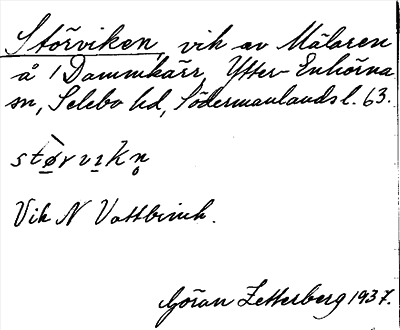 Störviken, vik av Mälaren
å 1 Dammkärr, Ytter-Enhörna
sn, Selebo hd, Södermanlands l. 63.
størvɪkn̥
Vik N Vattbrink.
Göran Zetterberg 1937.